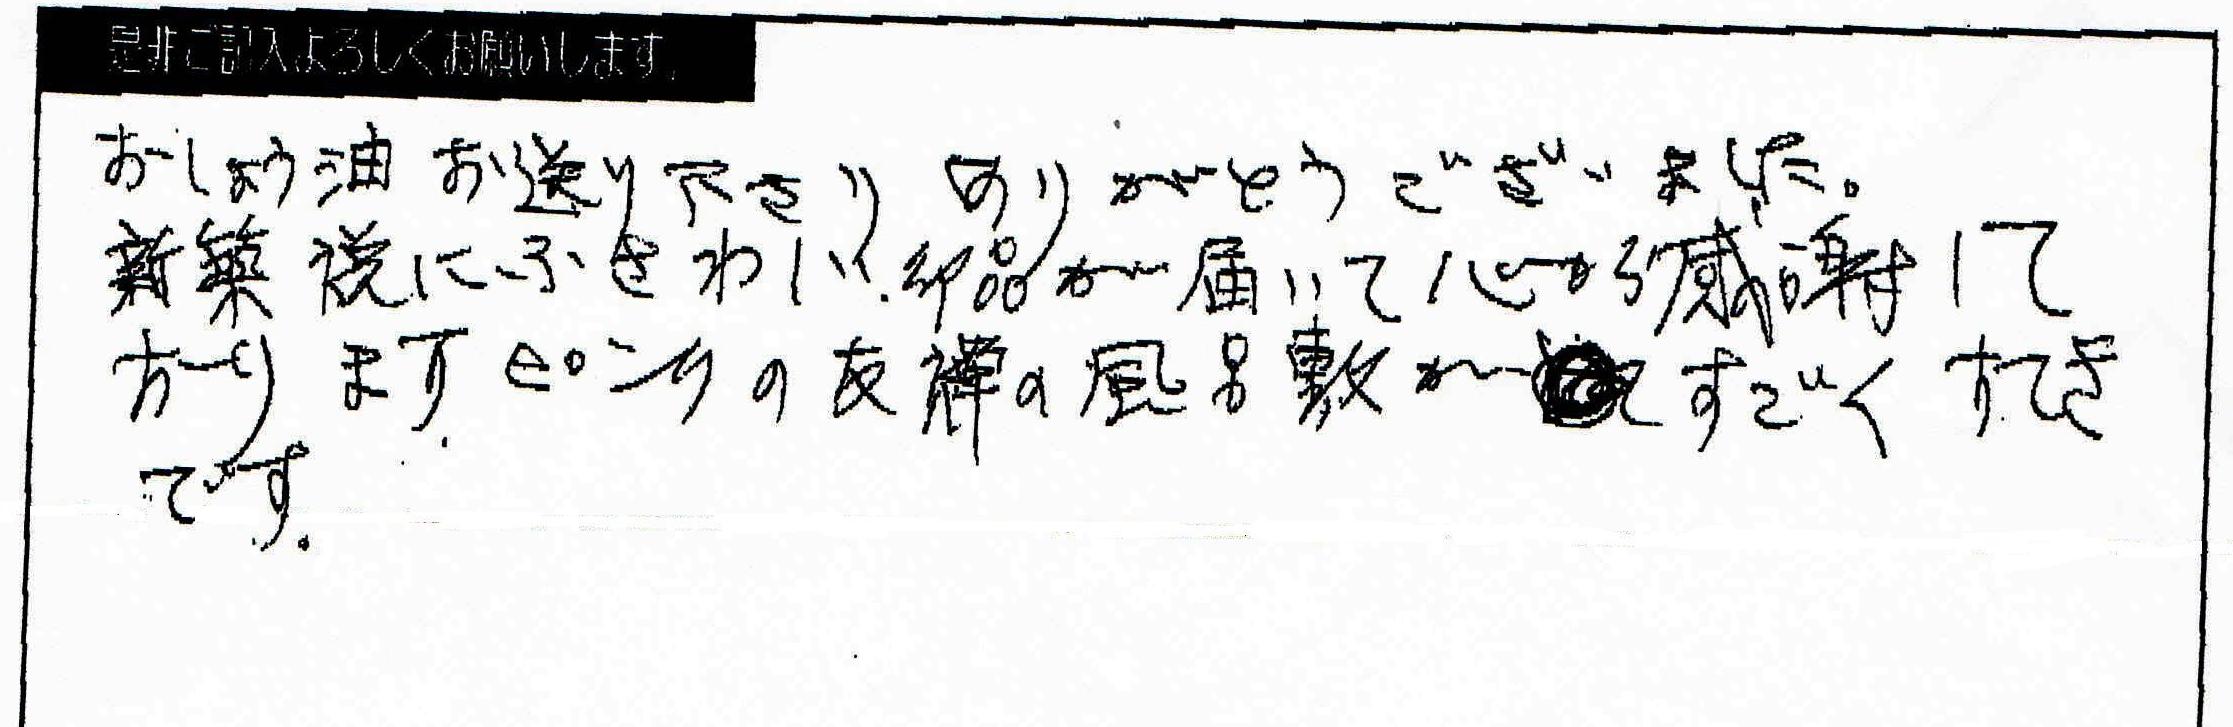 是非ご記入よろしくお願いします。
おしょう油お送り下さりありがとうございました。
新築祝にふさわしい品が届いて心から感謝して
おります。ピンクの友禅の風呂敷がすごくすてき
です。